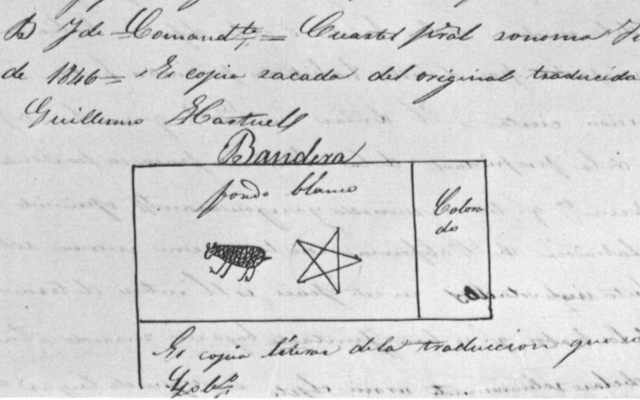 B Y de Comand.te = Cuartel pral sonoma
de 1846 = Es copia sacada del original traducida
Guillermo Hartnell
Bandera
fondo blanco
Colora
do
Es copia literal de la traduccion que
Gob.o